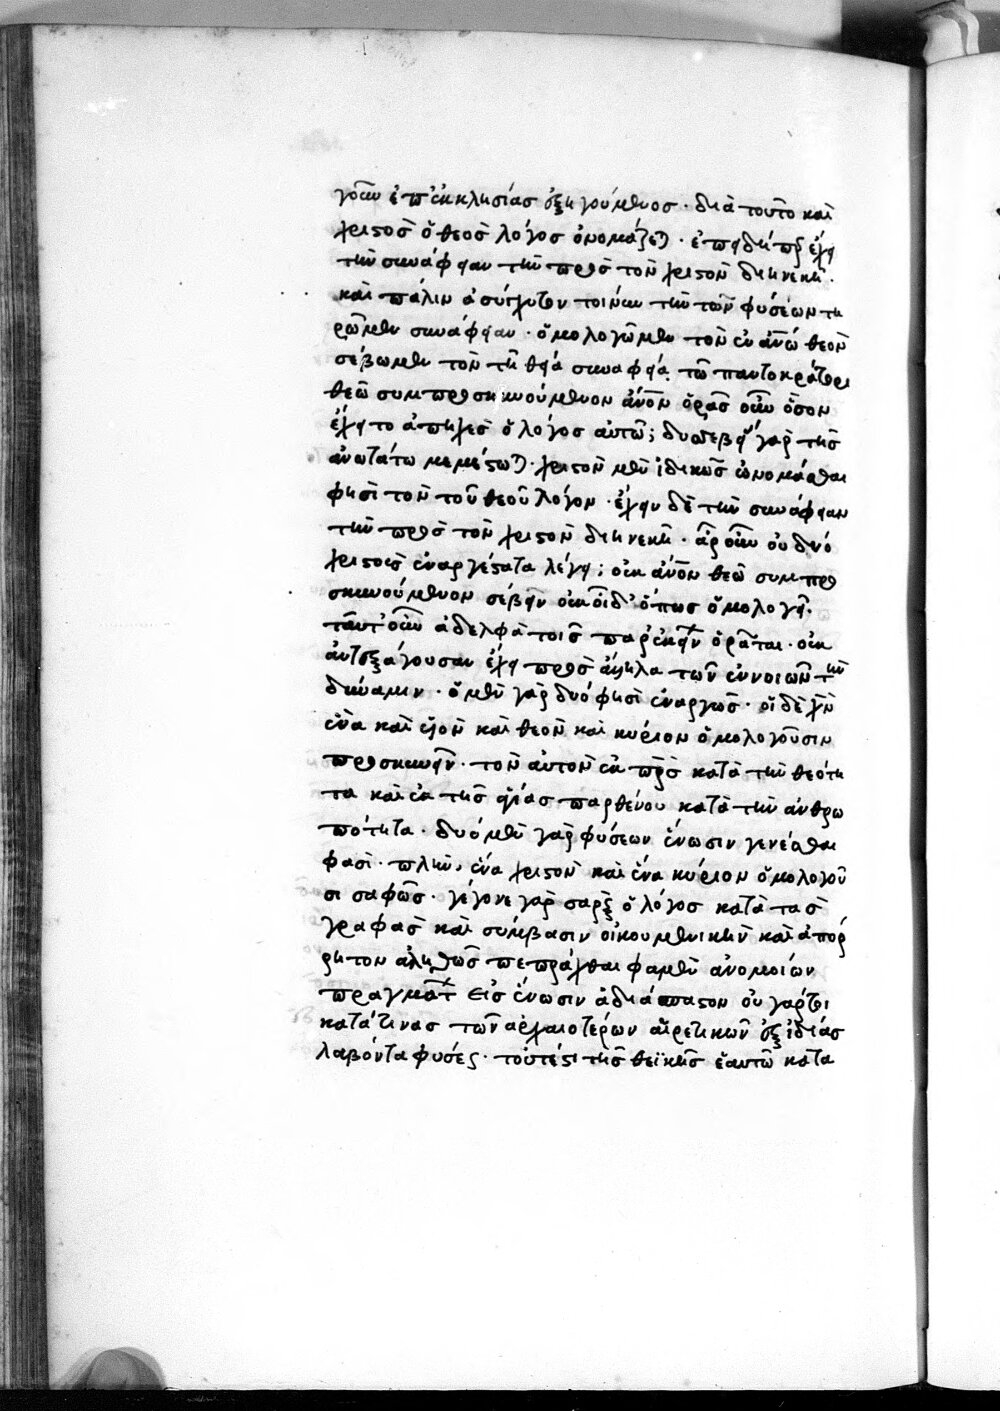 γοῦν ἐπ' ἐκκλησίας ἐξηγούμενος · διὰ τοῦτο καὶ
χριστὸς ὁ θεὸς λόγος ὀνομάζεται · ἐπειδήπερ ἔχει
τὴν συνάφειαν τὴν πρὸς τὸν χριστὸν διηνεκῆ ·
καὶ πάλιν ἀσύγχυτον τοίνυν τὴν τῶν φύσεων τη
ρῶμεν συνάφειαν · ὁμολογῶμεν τὸν ἐν ἀνῶ θεὸν
σέβωμεν τὸν τῆ θεία συναφεία τῶ παντοκράτορι
θεῶ συμπροσκυνούμενον ἀνὸν ὁρᾶς οὖν ὅσον
ἔχει τὸ ἀπηχὲς ὁ λόγος αὐτῶ; δυσσεβείας γὰρ τῆς
ἀνωτάτω μεμέστωται · χριστὸν μὲν ἰδικῶς ὠνομάσθαι
φησὶ τὸν τοῦ θεοῦ λόγον · ἔχειν δὲ τὴν συνάφειαν
τὴν πρὸς τὸν χριστὸν διηνεκῆ · ἆρ οὖν οὐ δύο
χριστοὺς ἐναργέστατα λέγει; οὐκ ἀνὸν θεῶ συμπρο
σκυνούμενον σέβειν οὐκ οἶδ' ὅπως ὁμολογεῖ ·
ταῦτ' οὖν ἀδελφὰ τοῖς παρ' ἐκείνων ὁρᾶται · οὐκ
ἀντεξάγουσαν ἔχει πρὸς ἄλληλα τῶν ἐννοιῶν τὴν
δύναμιν · ὁ μὲν γὰρ δύο φησὶ ἐναργῶς · οἱ δὲ χῆν
ἕνα καὶ υἱὸν καὶ θεὸν καὶ κύριον ὁμολογοῦσιν
προσκυνεῖν · τὸν αὐτὸν ἐκ πρς κατὰ τὴν θεότη
τα καὶ ἐκ τῆς ἁγίας παρθένου κατὰ τὴν ἀνθρω
πότητα · δύο μὲν γὰρ φύσεων ἕνωσιν γενέσθαι
φασὶ · πλὴν, ἕνα χριστὸν καὶ ἕνα κύριον ὁμολογοῦ
σι σαφῶς · γέγονε γὰρ σὰρξ ὁ λόγος κατὰ τὰς
γραφὰς καὶ σύμβασιν οἰκουμενικὴν καὶ ἀπόρ
ρητον ἀληθῶς πεπράχθαι φαμὲν ἀνομοίων
πραγμάτων εἰς ἕνωσιν ἀδιάσπαστον οὐ γάρτοι
κατά τινας τῶν ἀρχαιοτέρων αἱρετικῶν ἐξ ἰδίας
λαβόντα φύσεως · τουτέστι τῆς θεϊκῆς ἑαυτῶ κατα